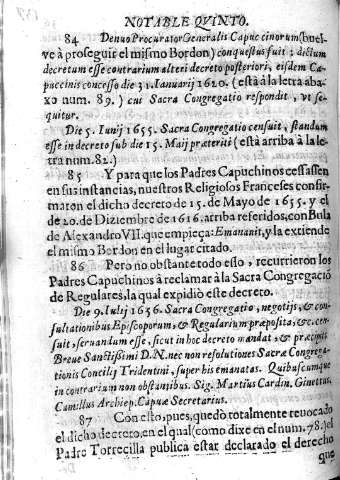 NOTABLE QVINTO.
84 Denuo Procurator Generalis Capuccinorum (buel-
ve à proseguir el mismo Bordon) conquestus fuit; dictum
decretum esse contrarium alteri decreto posteriori, eisdem Ca-
puccinis concesso die 31. Ianuarij 1620. (està à la letra aba-
xo num. 89.) cui Sacra Congregatio respondit, vt se-
quitur.
Die 5. Iunij 1655. Sacra Congregatio censuit, standum
esse in decreto sub die 15. Maij præteriti (està arriba à la le-
tra num. 82.)
85 Y para que los Padres Capuchinos cessassen
en sus instancias, nuestros Religiosos Franceses confir-
maron el dicho decreto de 15. de Mayo de 1655. y el
de 20. de Diziembre de 1616. arriba referidos, con Bula
de Alexandro VII. que empieça: Emananit, y la extiende
el mismo Bordon en el lugar citado.
86 Pero no obstante todo esto, recurrieron los
Padres Capuchinos à reclamar à la Sacra Congregaciō
de Regulares, la qual expidiò este decreto.
Die 9. Iulij 1656. Sacra Congregatio, negotijs, & con-
sultationibus Episcoporum, & Regularium præposita, &c. cen-
suit, seruandum esse, sicut in hoc decreto mandat, & præcipit
Breue Sanctissimi D. N. nec non resolutiones Sacræ Congrega-
tionis Concilij Tridentini, super his emanatas. Quibuscumque
in contrarium non obstantibus. Sig. Martius Cardin. Ginettus.
Camillus Archiep. Capuæ Secretarius.
87 Con esto, pues, quedò totalmente revocado
el dicho decreto, en el qual (como dixe en el num. 78.) el
Padre Torrecilla publica estar declarado el derecho
que